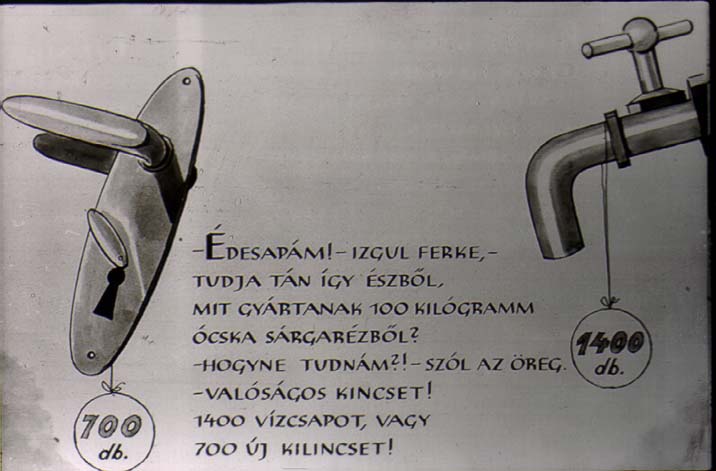 -ÉDESAPÁM!-IZGUL FERKE,-
TUDJA TÁN ÍGY ÉSZBŐL,
MIT GYÁRTANAK 100 KILÓGRAMM
ÓCSKA SÁRGARÉZBŐL?
-HOGYNE TUDNÁM?!-SZÓL AZ ÖREG.
-VALÓSÁGOS KINCSET!
1400 VÍZCSAPOT, VAGY
700 ÚJ KILINCSET!
700
db.
1400
db.